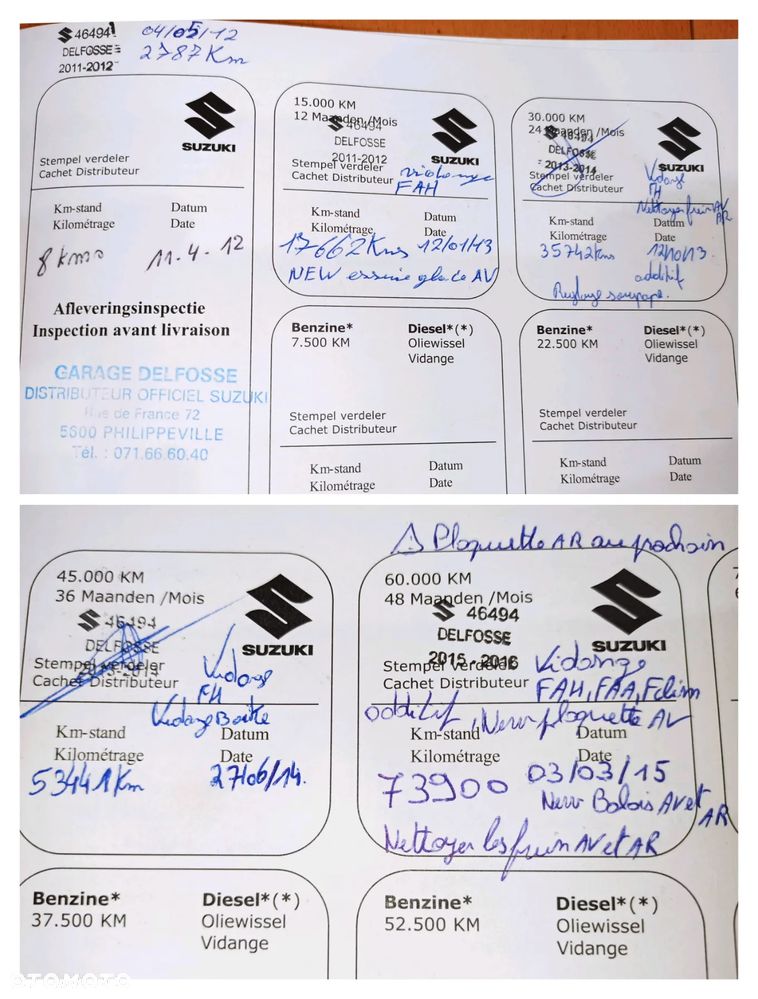 46494
DELFOSSE
2011-2012
04/05/12
2787 Km
SUZUKI
Stempel verdeler
Cachet Distributeur
Km-stand Datum
Kilométrage Date
8 kms 11.4.12
Afleveringsinspectie
Inspection avant livraison
GARAGE DELFOSSE
DISTRIBUTEUR OFFICIEL SUZUKI
Rue de France 72
5600 PHILIPPEVILLE
Tél. : 071.66.60.40
15.000 KM
12 Maanden /Mois
46494
DELFOSSE
2011-2012
SUZUKI
Stempel verdeler
Cachet Distributeur
Vidange
FAH
Km-stand Datum
Kilométrage Date
17662 Kms 12/01/13
NEW essuie glace AV
Benzine* Diesel*(*)
7.500 KM Oliewissel
Vidange
Stempel verdeler
Cachet Distributeur
Km-stand Datum
Kilométrage Date
30.000 KM
24 Maanden /Mois
46494
DELFOSSE
2013-2014
SUZUKI
Stempel verdeler
Cachet Distributeur
Vidange
FH
Nettoyer frein AV
AR
Km-stand Datum
Kilométrage Date
35742 Kms 12/10/13.
additif
Reglage soupape.
Benzine* Diesel*(*)
22.500 KM Oliewissel
Vidange
Stempel verdeler
Cachet Distributeur
Km-stand Datum
Kilométrage Date
45.000 KM
36 Maanden /Mois
46494
DELFOSSE
2013-2014
SUZUKI
Stempel verdeler
Cachet Distributeur
Vidange
FH
Vidange Boite
Km-stand Datum
Kilométrage Date
53441 Km 27/06/14.
Benzine* Diesel*(*)
37.500 KM Oliewissel
Vidange
⚠ Plaquette AR au prochain
60.000 KM
48 Maanden /Mois
46494
DELFOSSE
2015-2016
SUZUKI
Stempel verdeler
Cachet Distributeur
Vidange
FAH, FAA, Fclim
additif, New plaquette AV
Km-stand Datum
Kilométrage Date
73900 03/03/15
New Balais AV et AR
Nettoyer les frein AV et AR
Benzine* Diesel*(*)
52.500 KM Oliewissel
Vidange
OTOMOTO